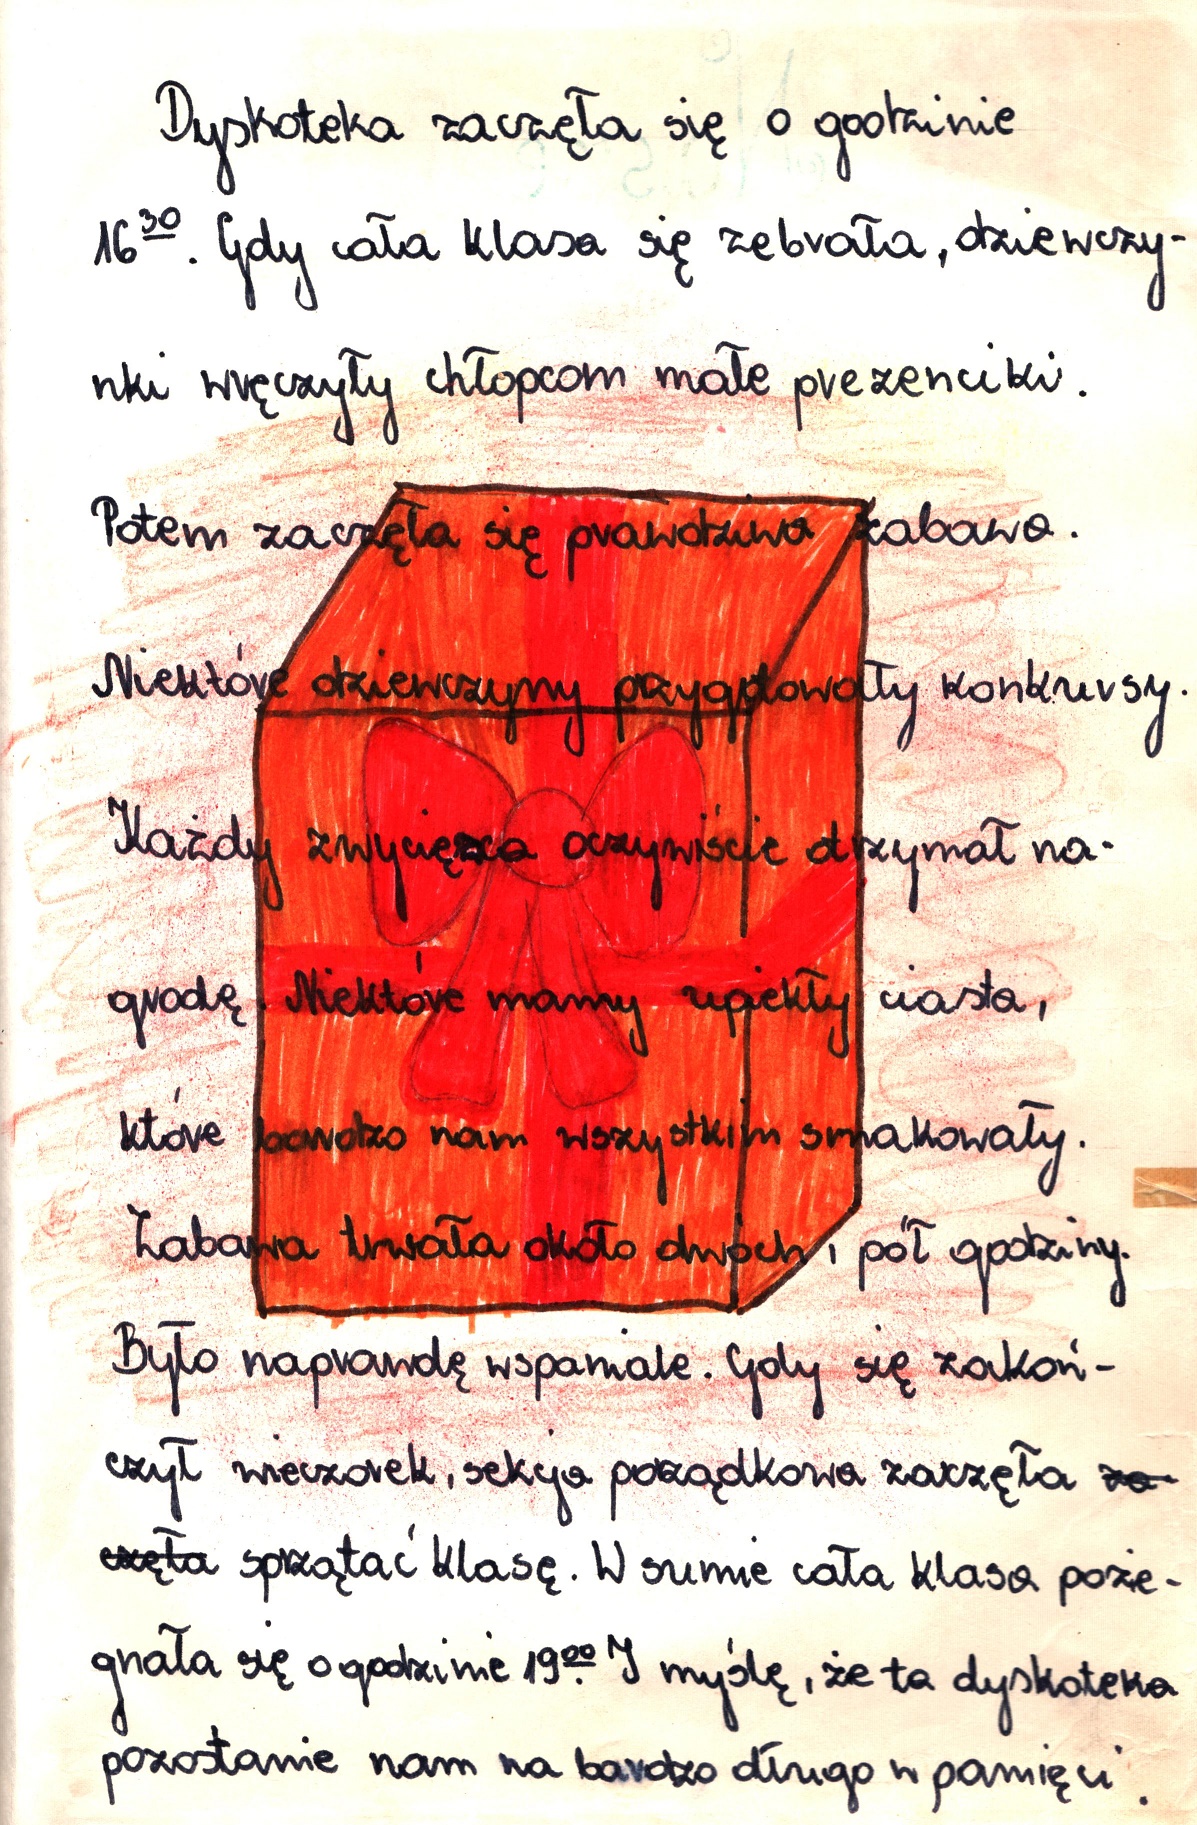 Dyskoteka zaczęła się o godzinie
16³⁰. Gdy cała klasa się zebrała, dziewczy-
nki wręczyły chłopcom małe prezenciki.
Potem zaczęła się prawdziwa zabawa.
Niektóre dziewczyny przygotowały konkursy.
Każdy zwycięzca oczywiście otrzymał na-
grodę. Niektóre mamy upiekły ciasta,
które bardzo nam wszystkim smakowały.
Zabawa trwała około dwóch i pół godziny.
Było naprawdę wspaniale. Gdy się zakoń-
czył wieczorek, sekcja porządkowa zaczęła za-
częła sprzątać klasę. W sumie cała klasa poże-
gnała się o godzinie 19⁰⁰. I myślę, że ta dyskoteka
pozostanie nam na bardzo długo w pamięci.